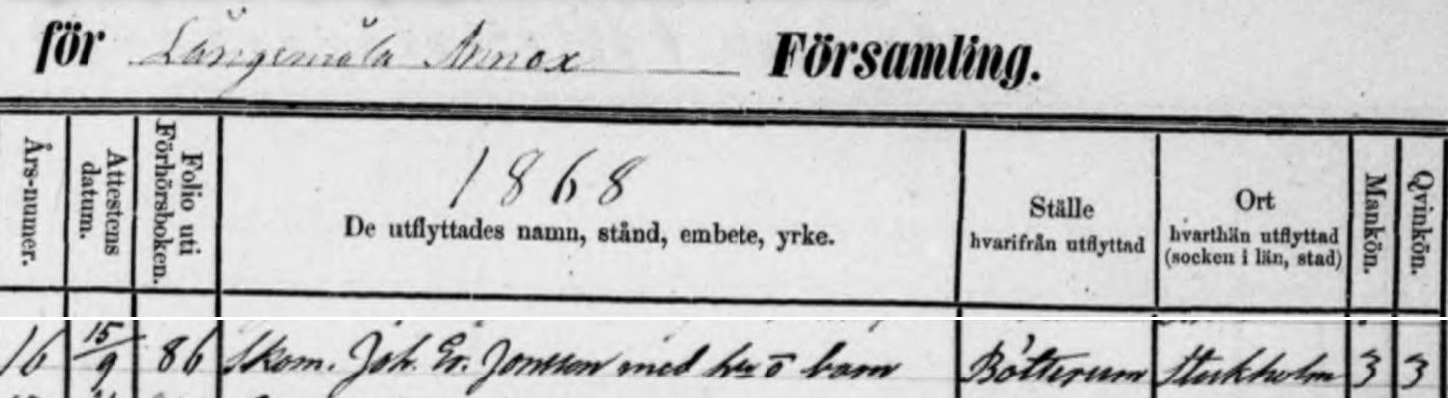 för Långemåla Annex Församling.
Års-numer.
Attestens datum.
Folio uti Förhörsboken.
1868
De utflyttades namn, stånd, embete, yrke.
Ställe
hvarifrån utflyttad
Ort
hvarthän utflyttad
(socken i län, stad)
Mankön.
Qvinkön.
16 15/9 86 Skom. Joh. Er. Jonsson med hu o barn Bötterum Stockholm 3 3